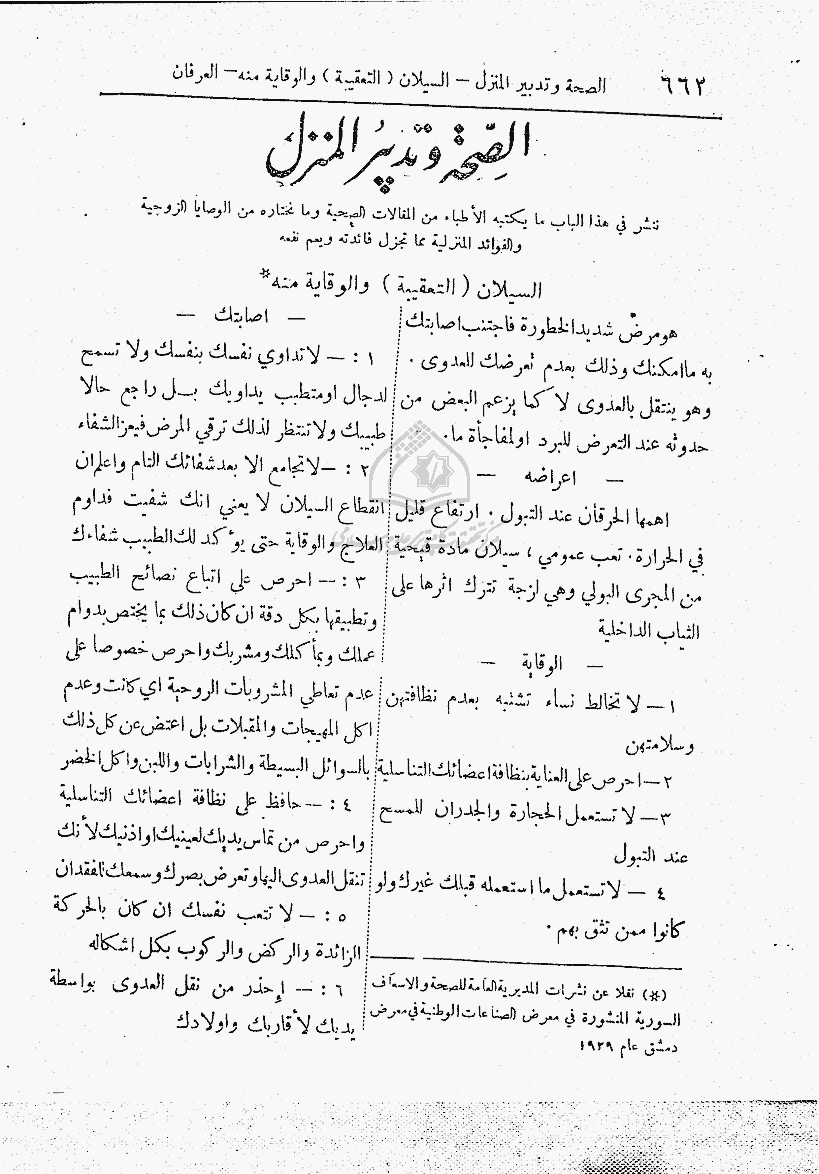 ٦٦٢ الصحة وتدبير المنزل – السيلان ( التعقيبة ) والوقاية منه – العرفان
الصحة وتدبير المنزل
ننشر في هذا الباب ما يكتبه الأطباء من المقالات الصحية وما نختاره من الوصايا الزوجية
والفوائد المنزلية مما تجزل فائدته ويعم نفعه
السيلان ( التعقيبة ) والوقاية منه*
هو مرض شديد الخطورة فاجتنب اصابتك
به ما امكنك وذلك بعدم تعرضك للعدوى .
وهو ينتقل بالعدوى لا كما يزعم البعض من
حدوثه عند التعرض للبرد او لمفاجأة ما .
— اعراضه —
اهمها الحرقان عند التبول . ارتفاع قليل
في الحرارة . تعب عمومي ، سيلان مادة قيحية
من المجرى البولي وهي لزجة تترك اثرها على
الثياب الداخلية
— الوقاية —
١ — لا تخالط نساء تشتبه بعدم نظافتهن
وسلامتهن
٢ — احرص على العناية بنظافة اعضائك التناسلية
٣ — لا تستعمل الحجارة والجدران للمسح
عند التبول
٤ — لا تستعمل ما استعمله قبلك غيرك ولو
كانوا ممن تثق بهم .
(*) نقلا عن نشرات المديرية العامة للصحة والاسعاف
السورية المنشورة في معرض الصناعات الوطنية في معرض
دمشق عام ١٩٢٩
— اصابتك —
١ : — لا تداوي نفسك بنفسك ولا تسمح
لدجال او متطبب يداويك بـل راجع حالا
طبيبك ولا تنتظر لذلك ترقي المرض فيعز الشفاء
٢ : — لا تجامع الا بعد شفائك التام واعلم ان
انقطاع السيلان لا يعني انك شفيت فداوم
العلاج والوقاية حتى يؤكد لك الطبيب شفاءك
٣ : — احرص على اتباع نصائح الطبيب
وتطبيقها بكل دقة ان كان ذلك بما يختص بدوام
عملك وبمأكلك ومشربك واحرص خصوصا على
عدم تعاطي المشروبات الروحية اي كانت وعدم
اكل المهيجات والمقبلات بل اعتض عن كل ذلك
بالسوائل البسيطة والشرابات واللبن واكل الخضر
٤ : — حافظ على نظافة اعضائك التناسلية
واحرص من تماس يديك لعينيك او اذنيك لأنك
تنقل العدوى اليها وتعرض بصرك وسمعك للفقدان
٥ : — لا تتعب نفسك ان كان بالحركة
الزائدة والركض والركوب بكل اشكاله
٦ : — إحذر من نقل العدوى بواسطة
يديك لأقاربك واولادك